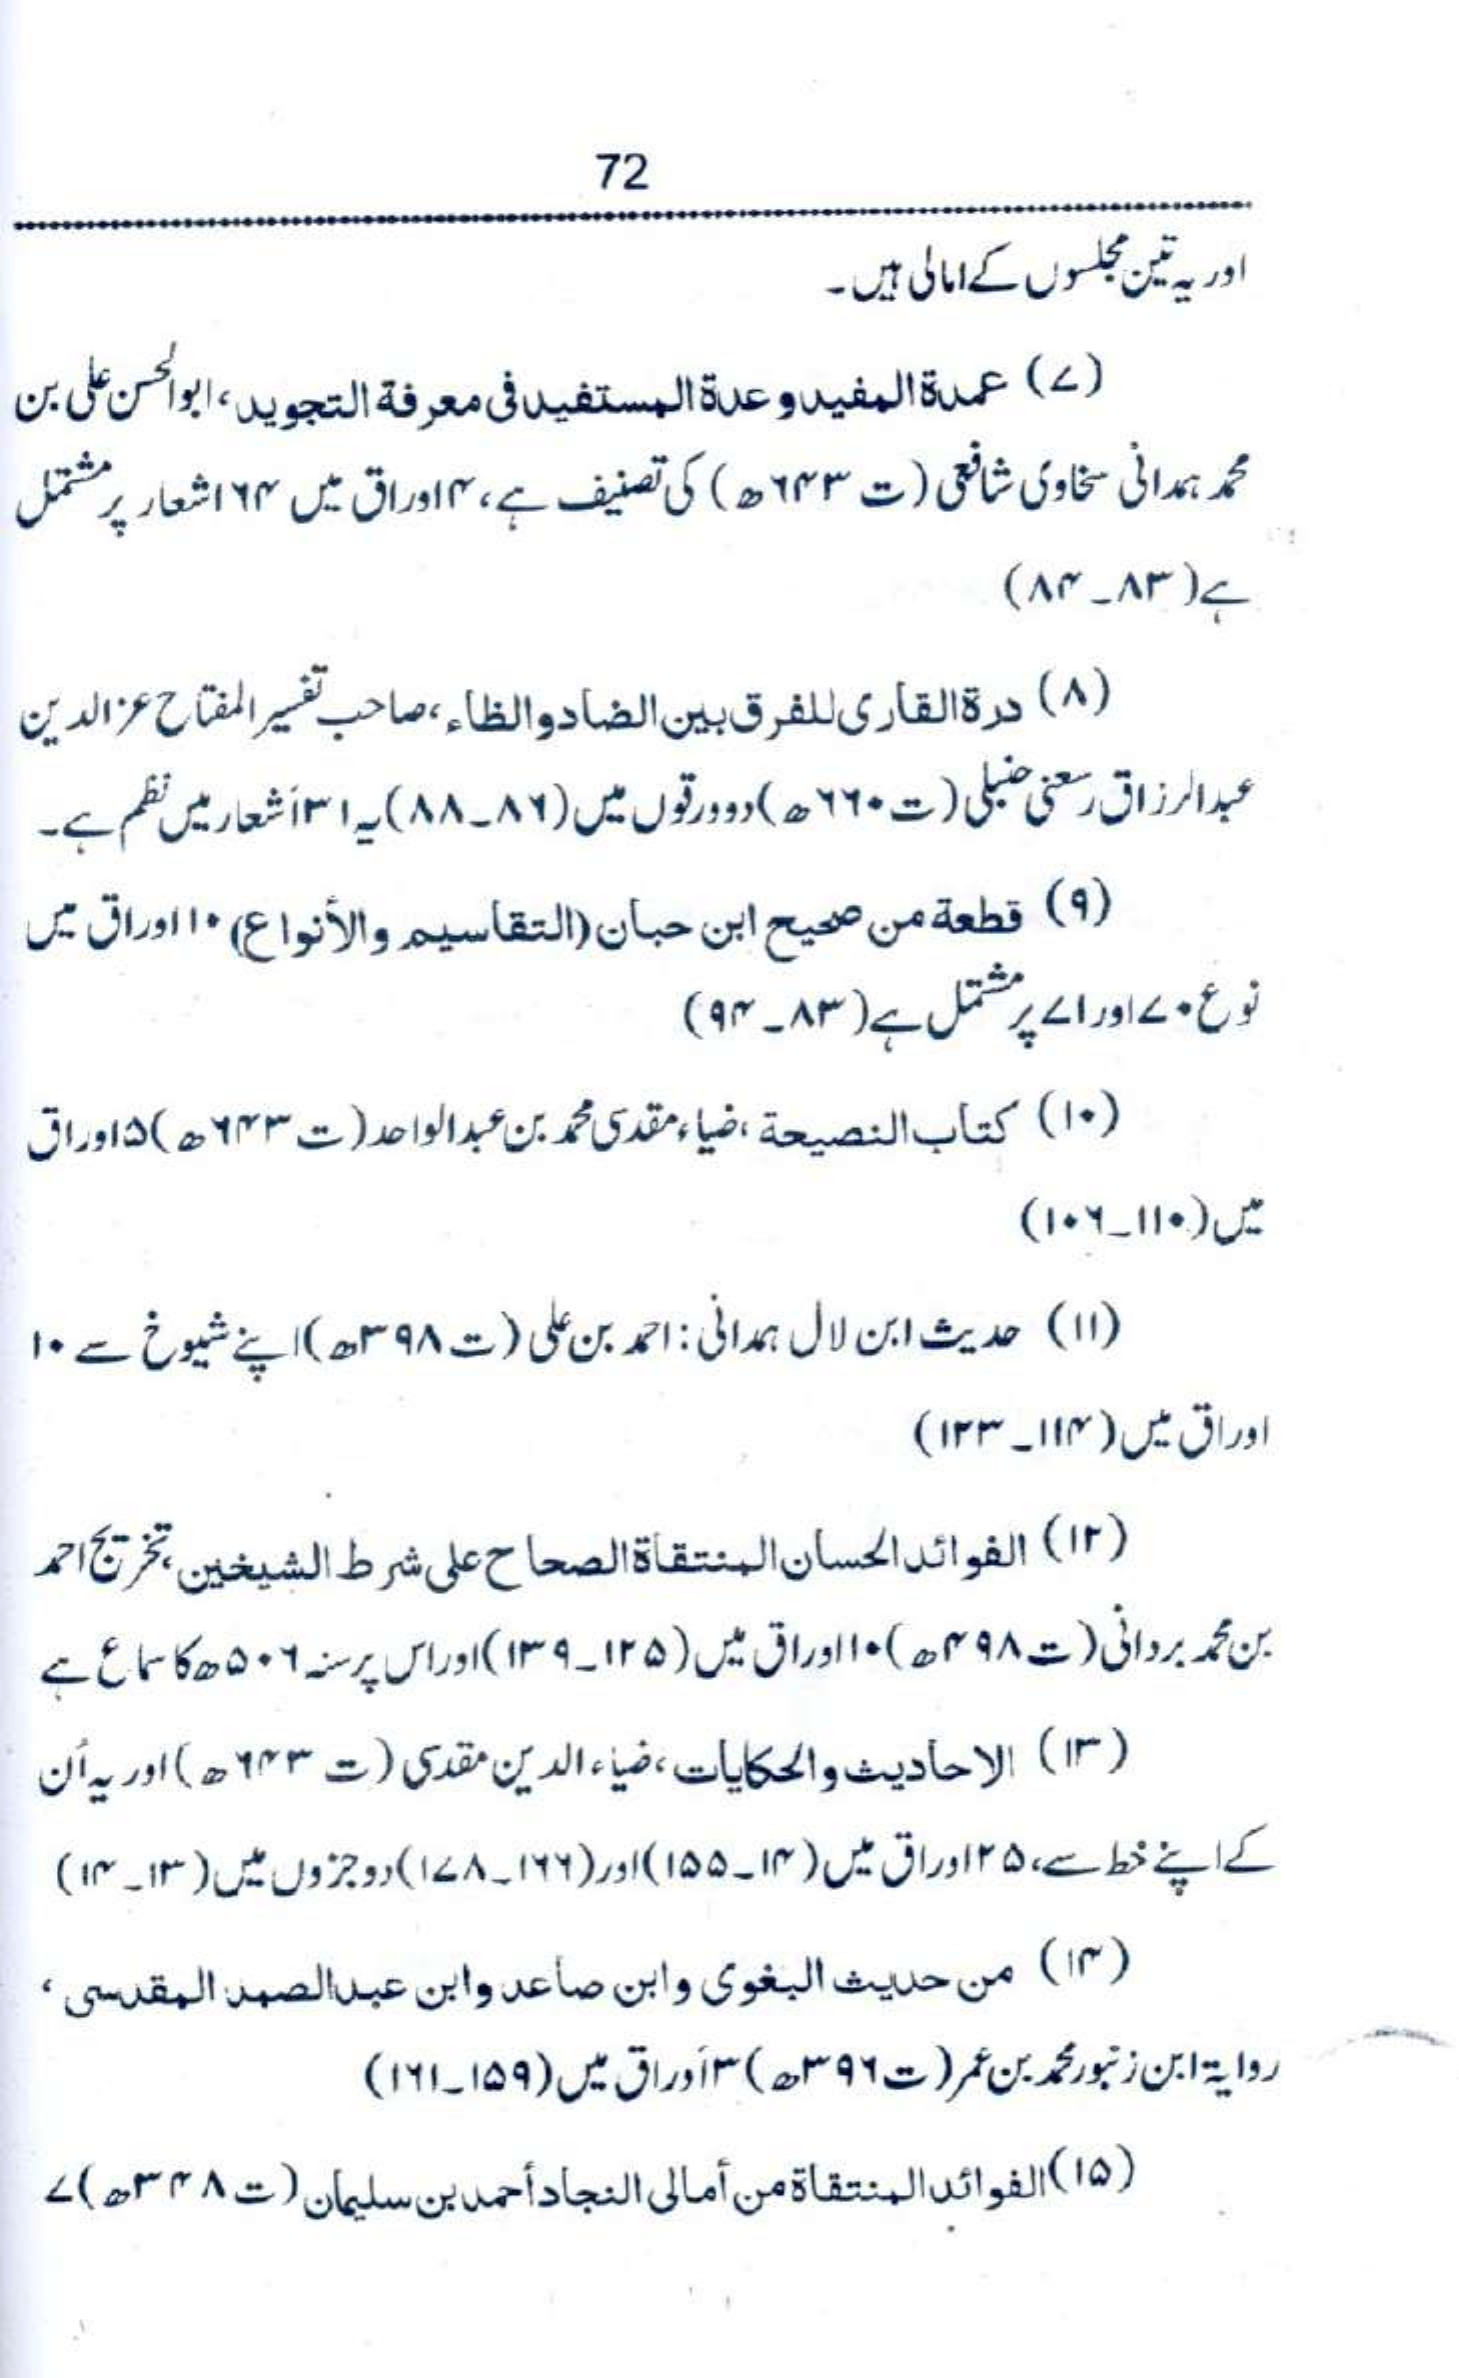 72
اور یہ تین مجلسوں کے امالی ہیں۔
(۷) عمدة المفید و عدة المستفید فی معرفة التجوید، ابوالحسن علی بن
محمد ہمدانی سخاوی شافعی (ت ۶۴۳ھ) کی تصنیف ہے، ۴ اوراق میں ۶۴ اشعار پر مشتمل
ہے (۸۳۔۸۴)
(۸) درة القاری للفرق بین الضاد و الظاء، صاحب تفسیر المفتاح عزالدین
عبدالرزاق رسعنی حنبلی (ت ۶۶۰ھ) دو ورقوں میں (۸۶۔۸۸) یہ ۳۱ أشعار میں نظم ہے۔
(۹) قطعة من صحیح ابن حبان (التقاسیم والأنواع) ۱۰ اوراق میں
نوع ۷۰ اور ۷۱ پر مشتمل ہے (۸۳۔۹۴)
(۱۰) کتاب النصیحة، ضیاء مقدسی محمد بن عبدالواحد (ت ۶۴۳ھ) ۵ اوراق
میں (۱۱۰۔۱۰۶)
(۱۱) حدیث ابن لال ہمدانی: احمد بن علی (ت ۳۹۸ھ) اپنے شیوخ سے ۱۰
اوراق میں (۱۱۴۔۱۲۳)
(۱۲) الفوائد الحسان المنتقاة الصحاح علی شرط الشیخین، تخریج احمد
بن محمد بردانی (ت ۴۹۸ھ) ۱۰ اوراق میں (۱۲۵۔۱۳۹) اور اس پر سنہ ۵۰۶ھ کا سماع ہے
(۱۳) الاحادیث والحکایات، ضیاء الدین مقدسی (ت ۶۴۳ھ) اور یہ اُن
کے اپنے خط سے، ۲۵ اوراق میں (۱۴۔۱۵۵) اور (۱۶۶۔۱۷۸) دو جزوں میں (۱۳۔۱۴)
(۱۴) من حدیث البغوی وابن صاعد وابن عبدالصمد المقدسی،
روایة ابن زنبور محمد بن عمر (ت ۳۹۶ھ) ۳ أوراق میں (۱۵۹۔۱۶۱)
(۱۵) الفوائد المنتقاة من أمالی النجاد أحمد بن سلیمان (ت ۳۴۸ھ) ۷